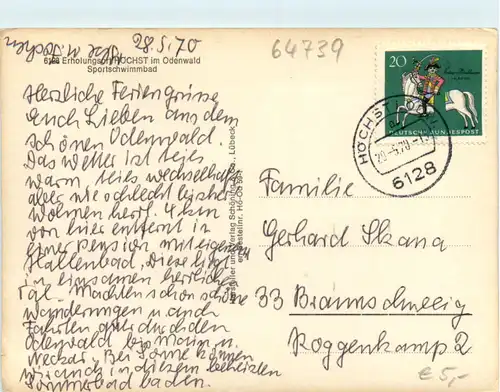 28.5.70
64739
6128 Erholungsort HÖCHST im Odenwald
Sportschwimmbad
Herzliche Feriengrüsse
Euch Lieben aus dem
schönen Odenwald.
Das Wetter ist teils
warm teils wechselhaft
aber wie schlecht bisher
wohnen hier 4 km
von hier entfernt in
einer Pension mit eigenem
Hallenbad, diese liegt
in einsamen herrlichen
Tal. Machten schon schöne
Wanderungen u. auch
Fahrten durch den
Odenwald bis Main u.
Neckar. Bei Sonne können
wir auch in diesem beheizten
baden.
Hersteller und Verlag Schöning & Co., Lübeck
Bestellnr. Hö
20
DEUTSCHE BUNDESPOST
HÖCHST
6128
Familie
Gerhard Skana
33 Braunschweig
Roggenkamp 2
€ 5,-